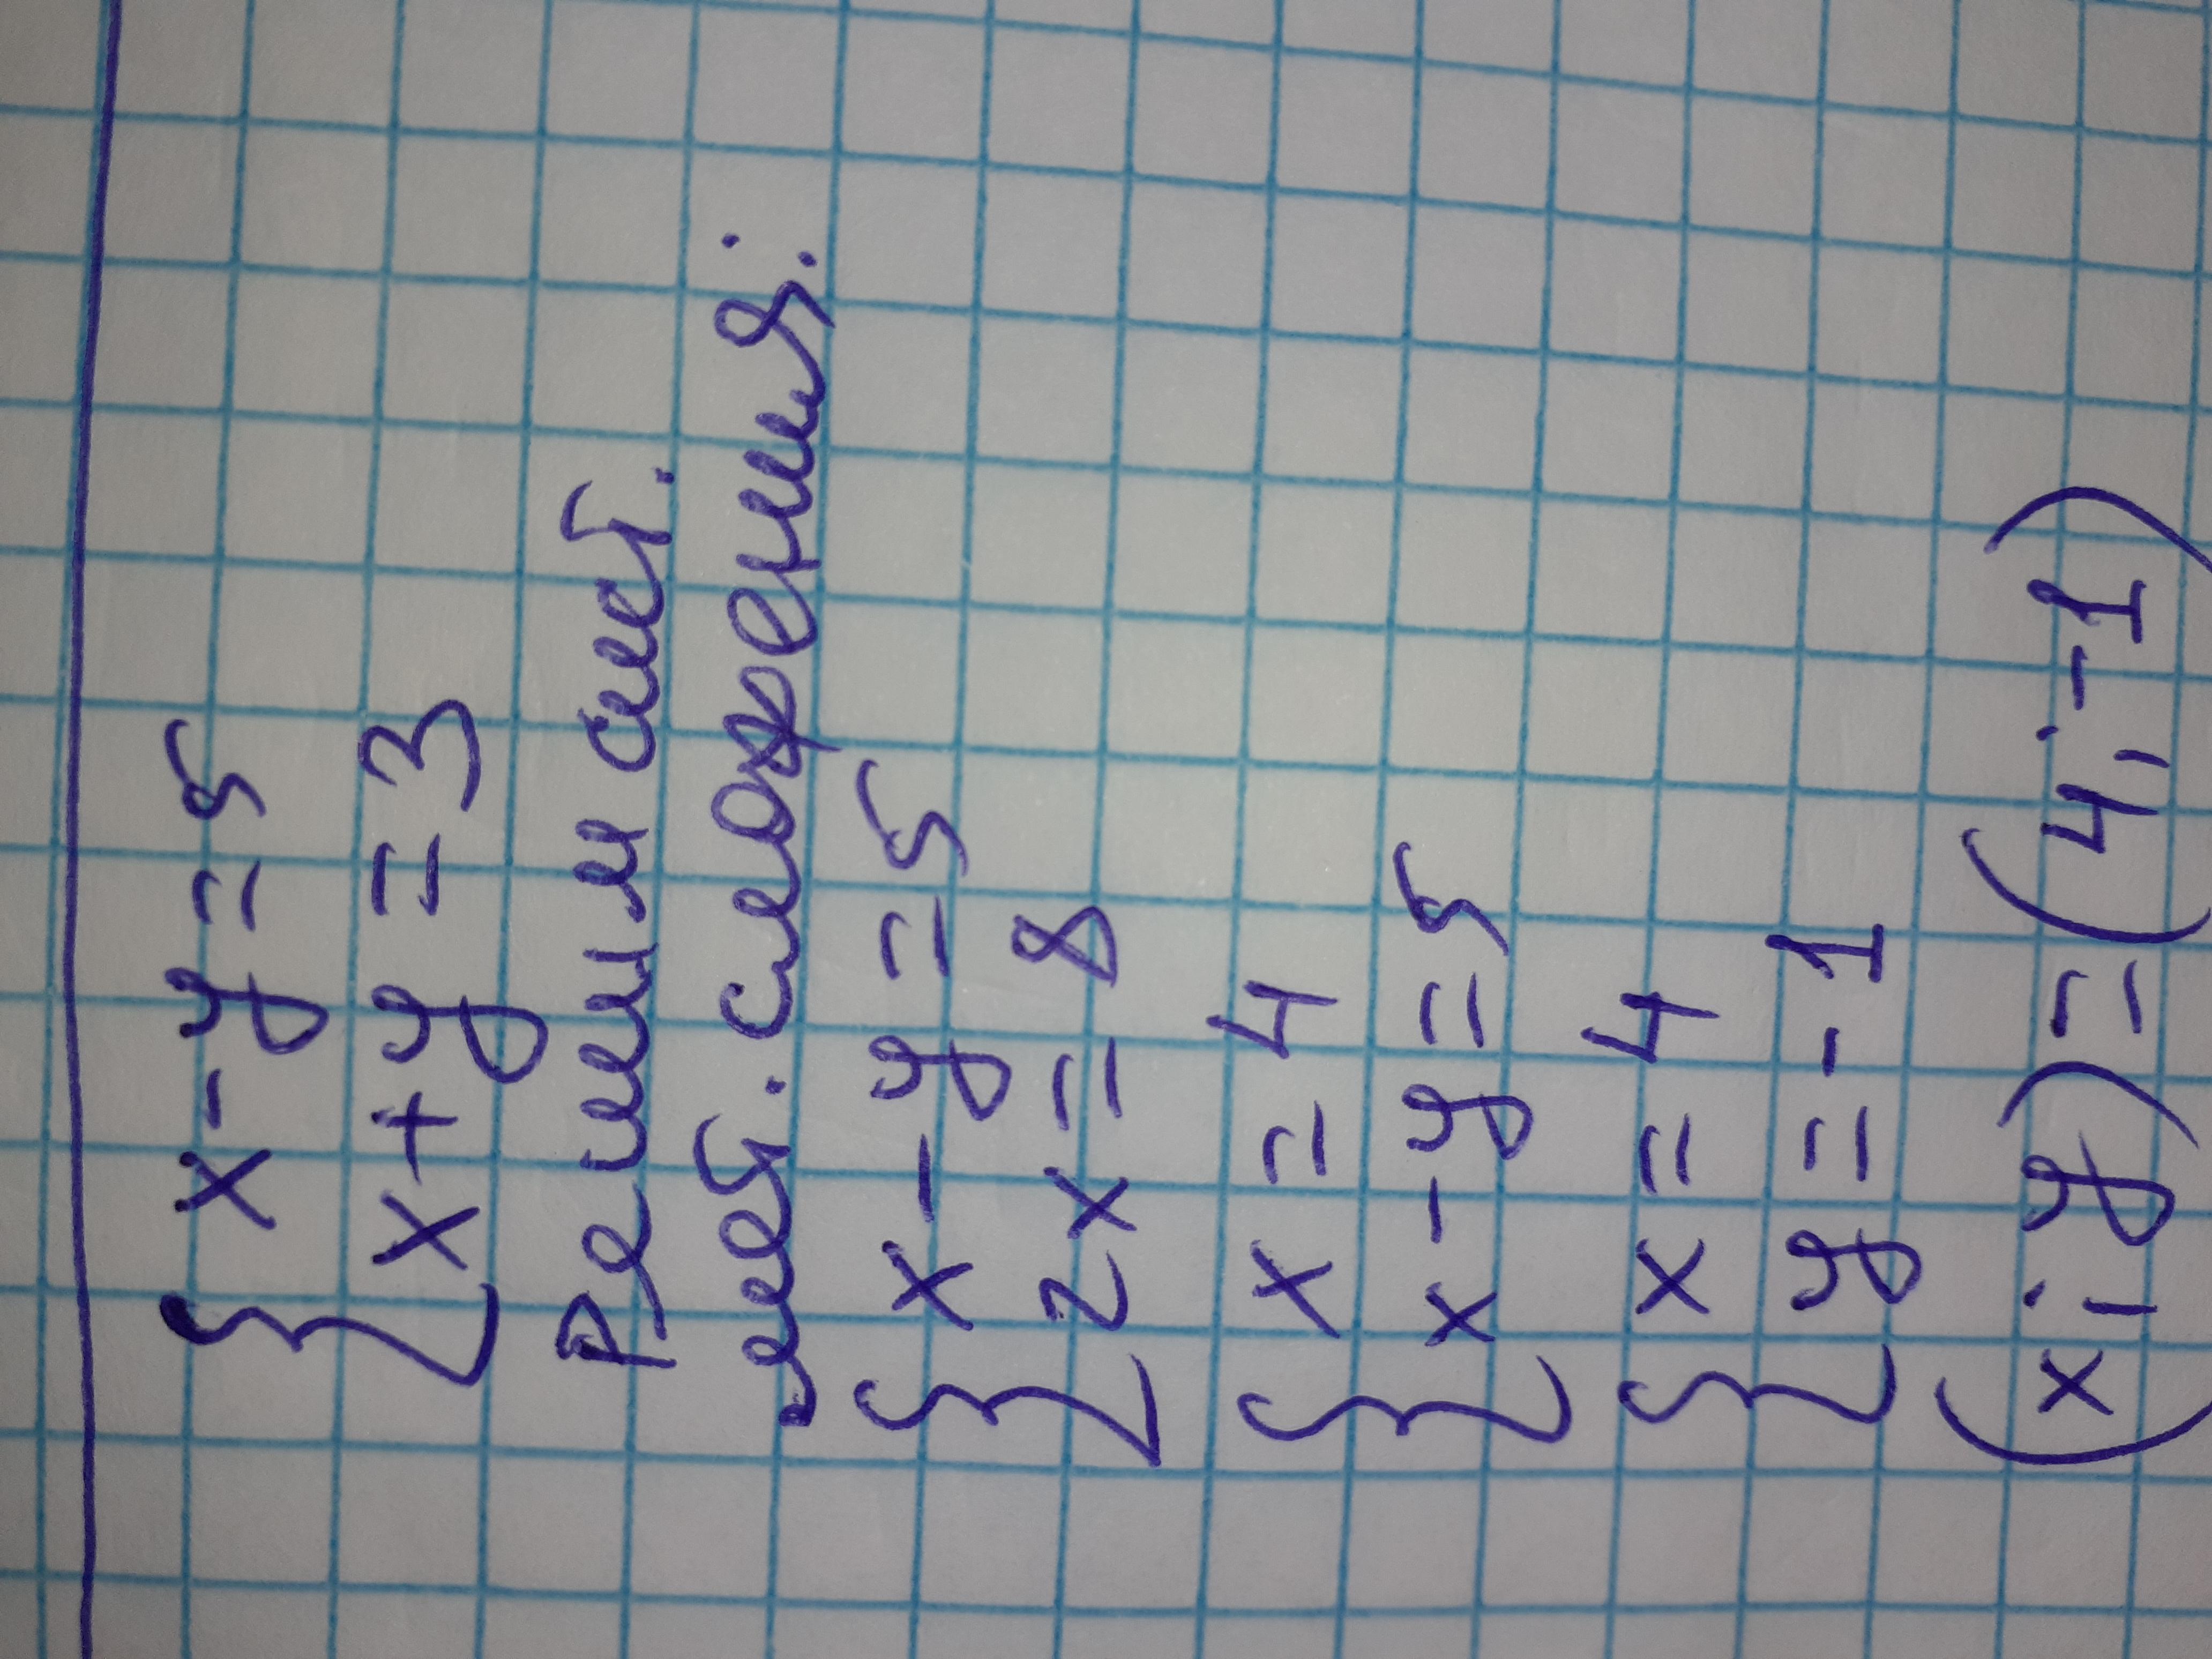 { x - y = 5
x + y = 3
Решим сист.
мет. сложения:
{ x - y = 5
2x = 8
{ x = 4
x - y = 5
{ x = 4
y = -1
(x; y) = (4; -1)